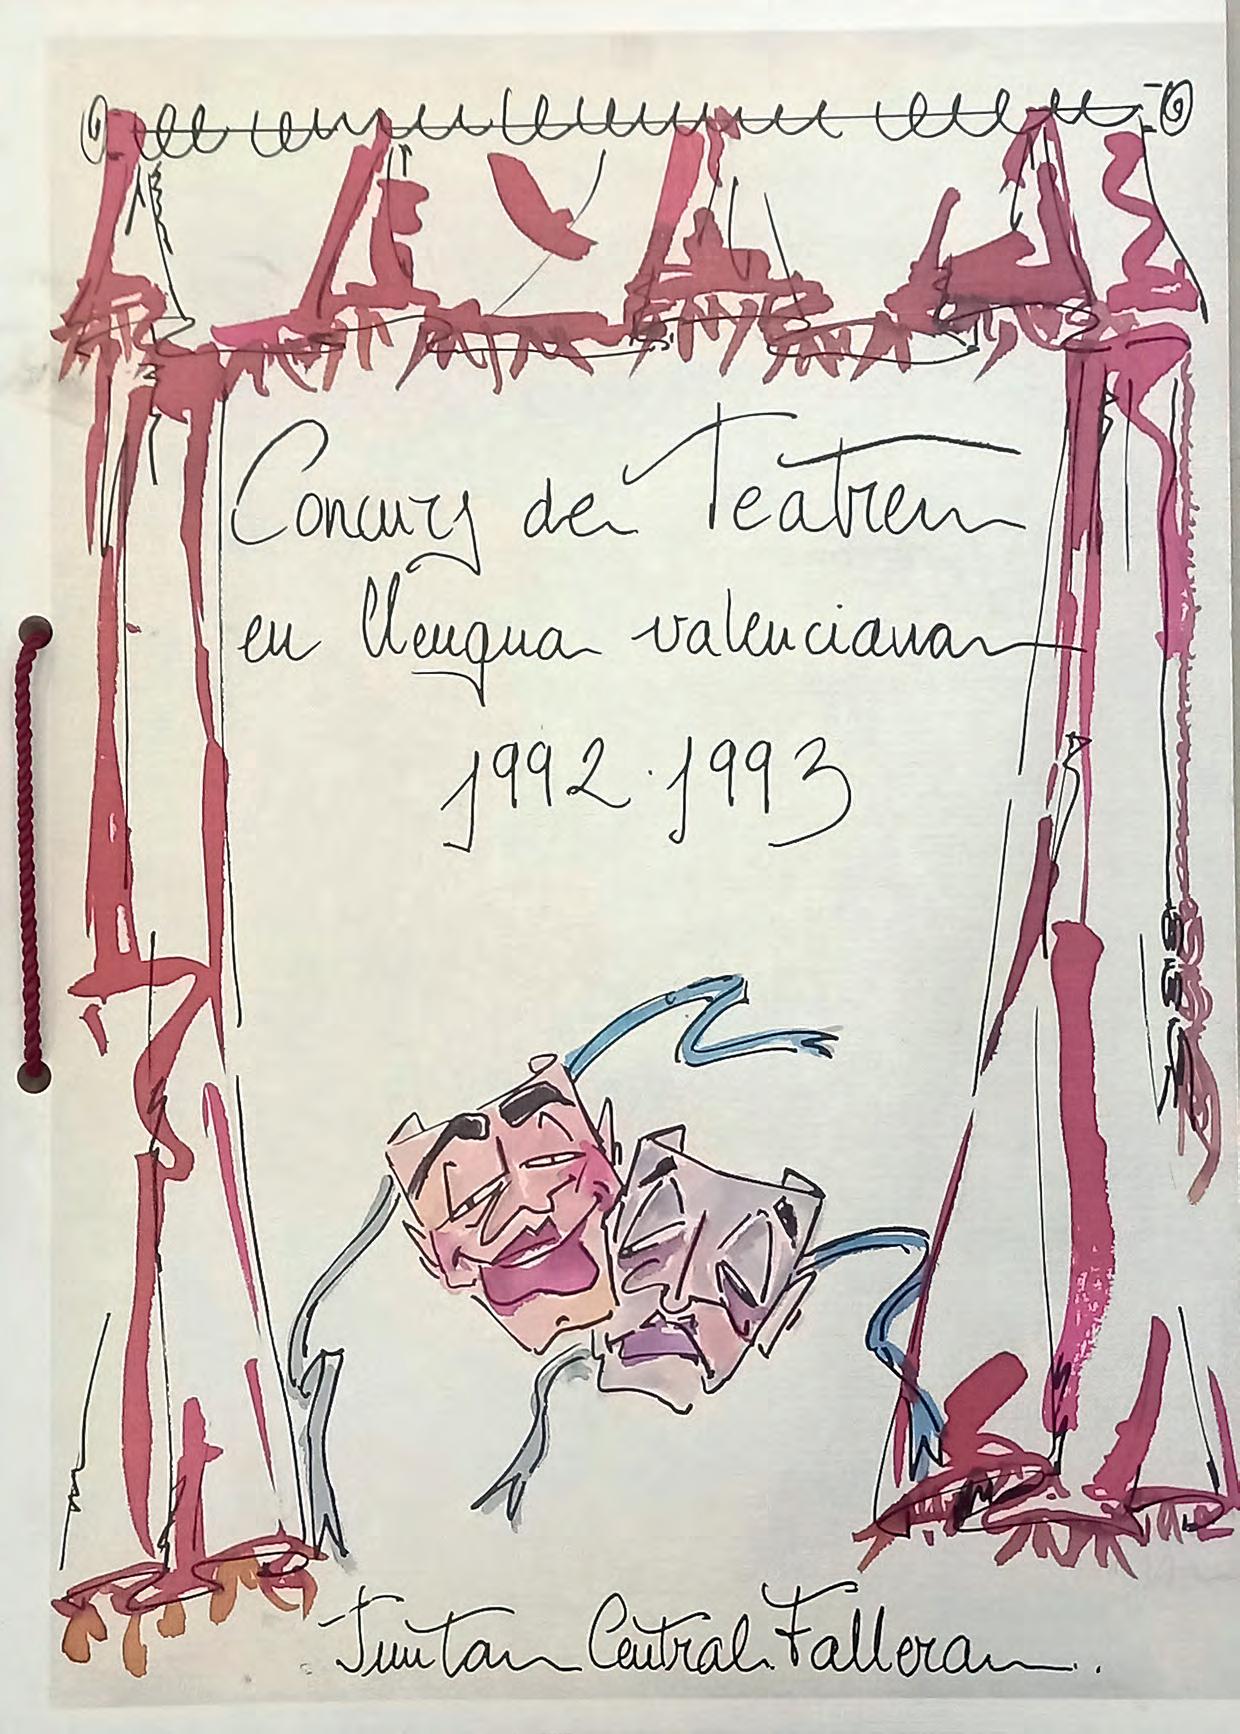 Concurs de Teatre
en llengua valenciana
1992·1993
Junta Central Fallera.